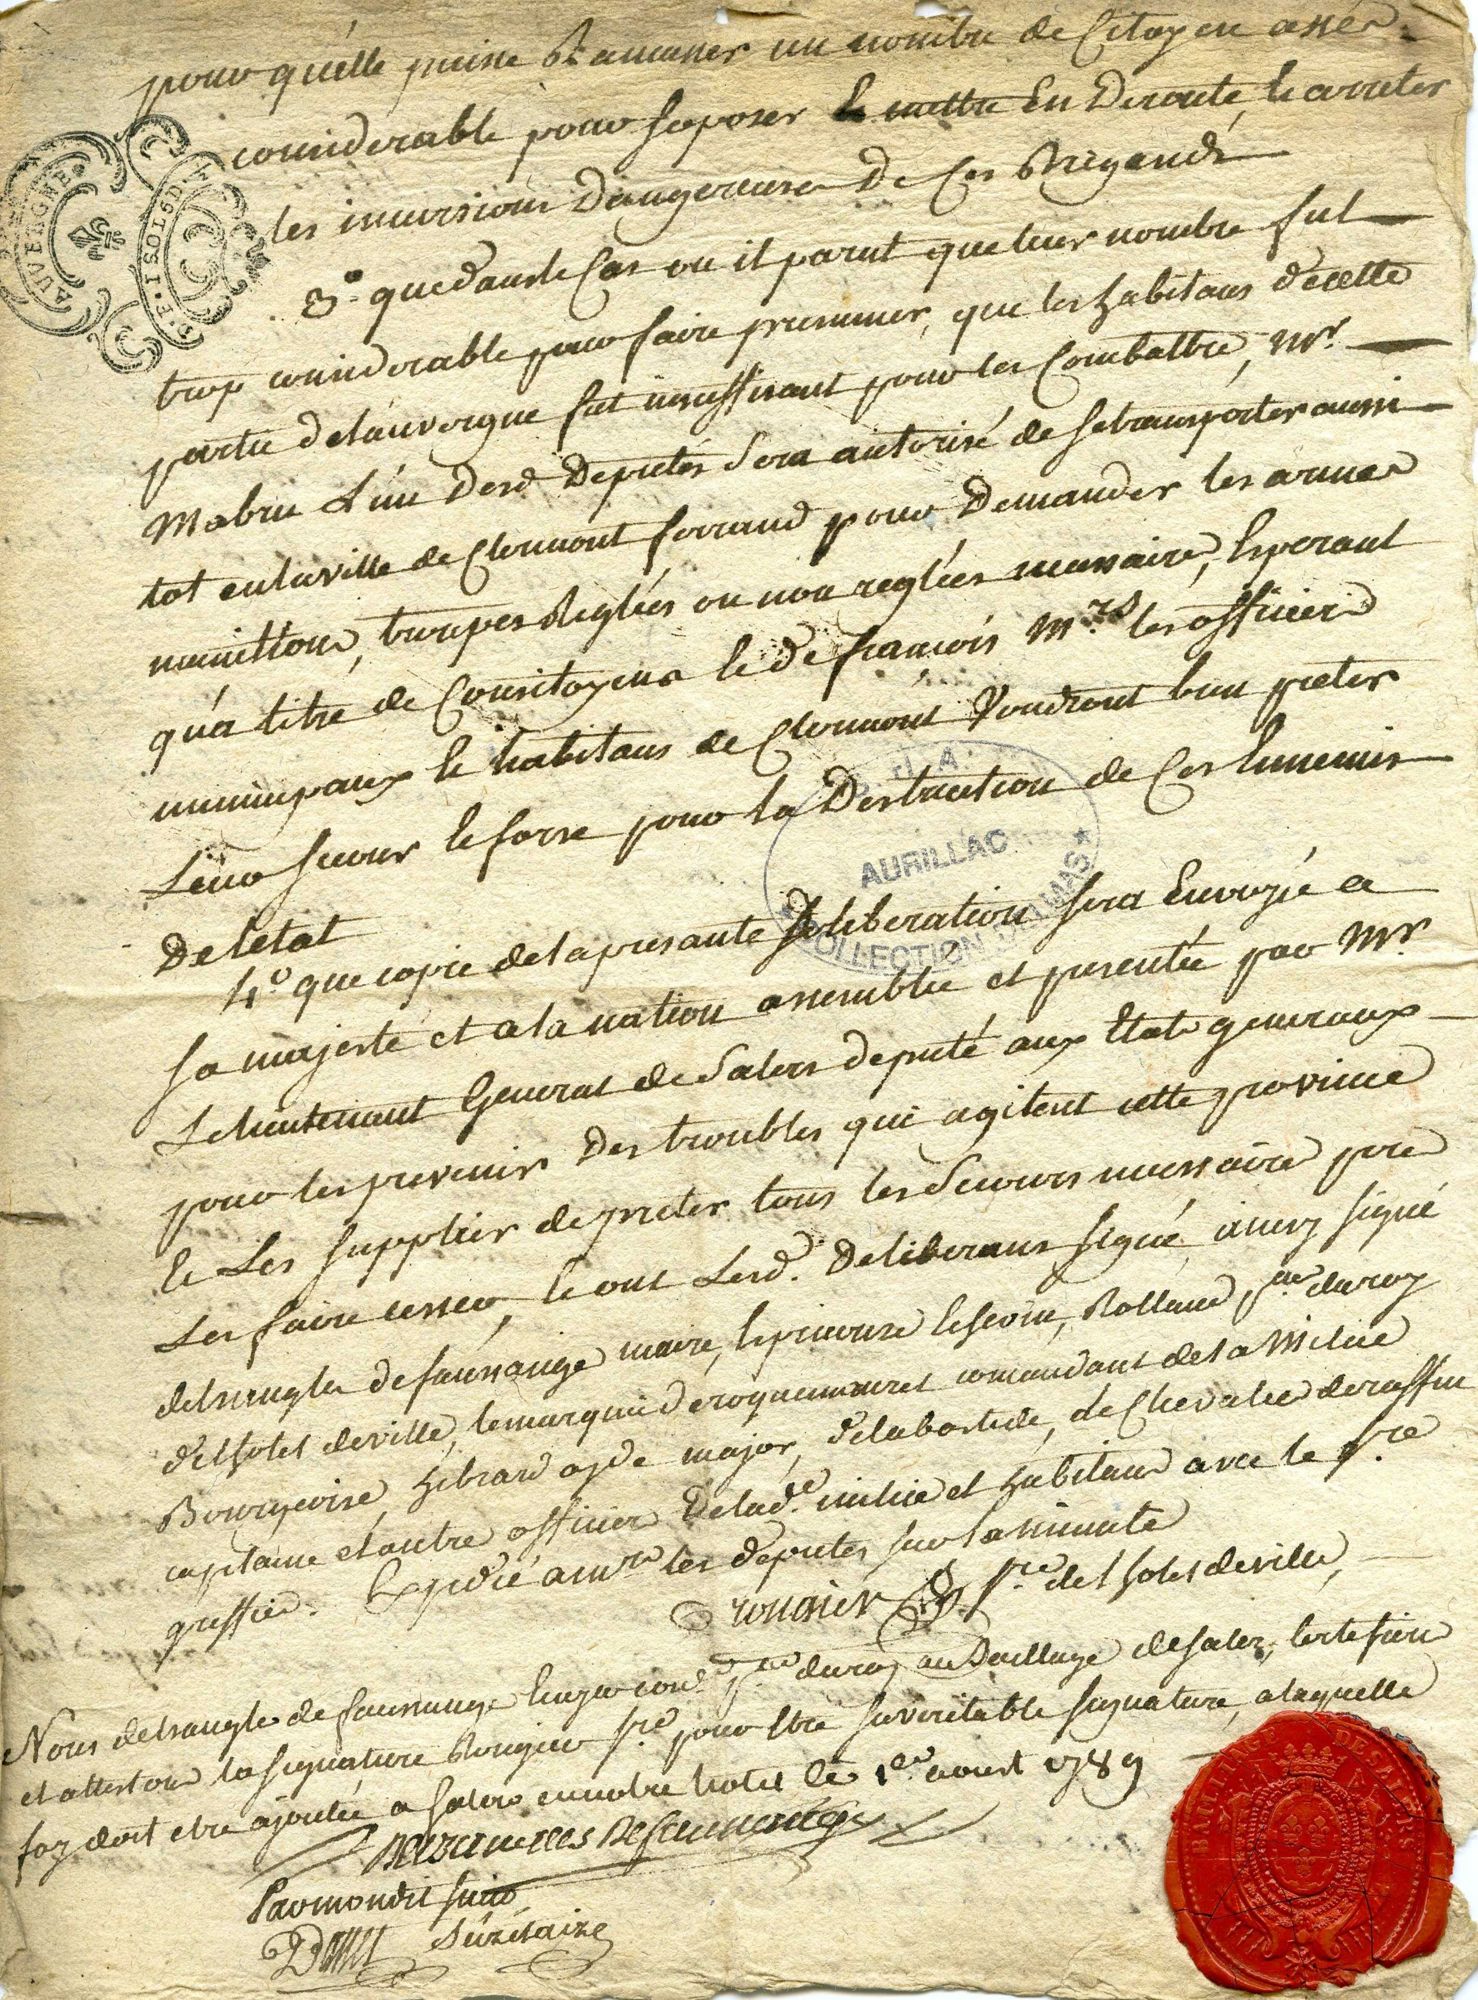 pour quélle puisse Ramasser un nombre de Citoyen assés
considerable pour soposer le mettre En Deroute, le arreter
les incursions Dangereuses De Ces Brigands
3o. que dans le Cas ou il parut que leur nombre fut
trop considerable pour faire presumer, que les habitans d'ecette
partie delauvergne fut insuffisant pour les Combattre, Mr.
Mabru L'un Desd Deputés Sera autorisé de setransporter aussi
tot en laville de Clermont ferrand pour Demander les armes
munittions, troupes Reglées ou non reglées nessaire, Esperant
qu'a titre de Consitoyens le de françois Mrs. les officiers
municipaux le habitans de Clermont Voudront bien preter
Leur secour le forse pour la Destruction de Ces Ennemis
De letat
4o. que copie de la presante Deliberation sera Envoyée a
sa majesté et a la nation assemblée et presentée par Mr
Le lieutenant General de Salers deputé aux Etats generaux
pour les prevenir Des troubles qui agitent cette province
le Les supplier de preter tous les Secours nessaire pour
Les faire cesser, le ont Lesd. Deliberans signé, ainsy signé
detrangles defaussange maire, lescure, Rolland pr. du roy
d'elhotel deville, lemarquis deroquemaurel comandant de la Milice
Bourgeoise, hebrard ayde major, delabastide, de Chevalier deraffin
capitaine et autre officiers Delad.e milice et habitans avec le sre.
greffier. Expedié a mrs les deputés sur la minute
rougier sre. de lhotel deville,
Nous detrangles de faussange procr. du roy au Baillage desalers, certifions
et attestons la signature Rougier sre. pour etre saveritable signature, a laquelle
foy doit etre ajoutée a Salers ennotre hotel le 1er aoust 1789
Detrangles Defaussange
Parmondit sieur
Secrétaire
AUVERGNE
AURILLAC
COLLECTION DELMAS
BAILLIAGE DE SALERS